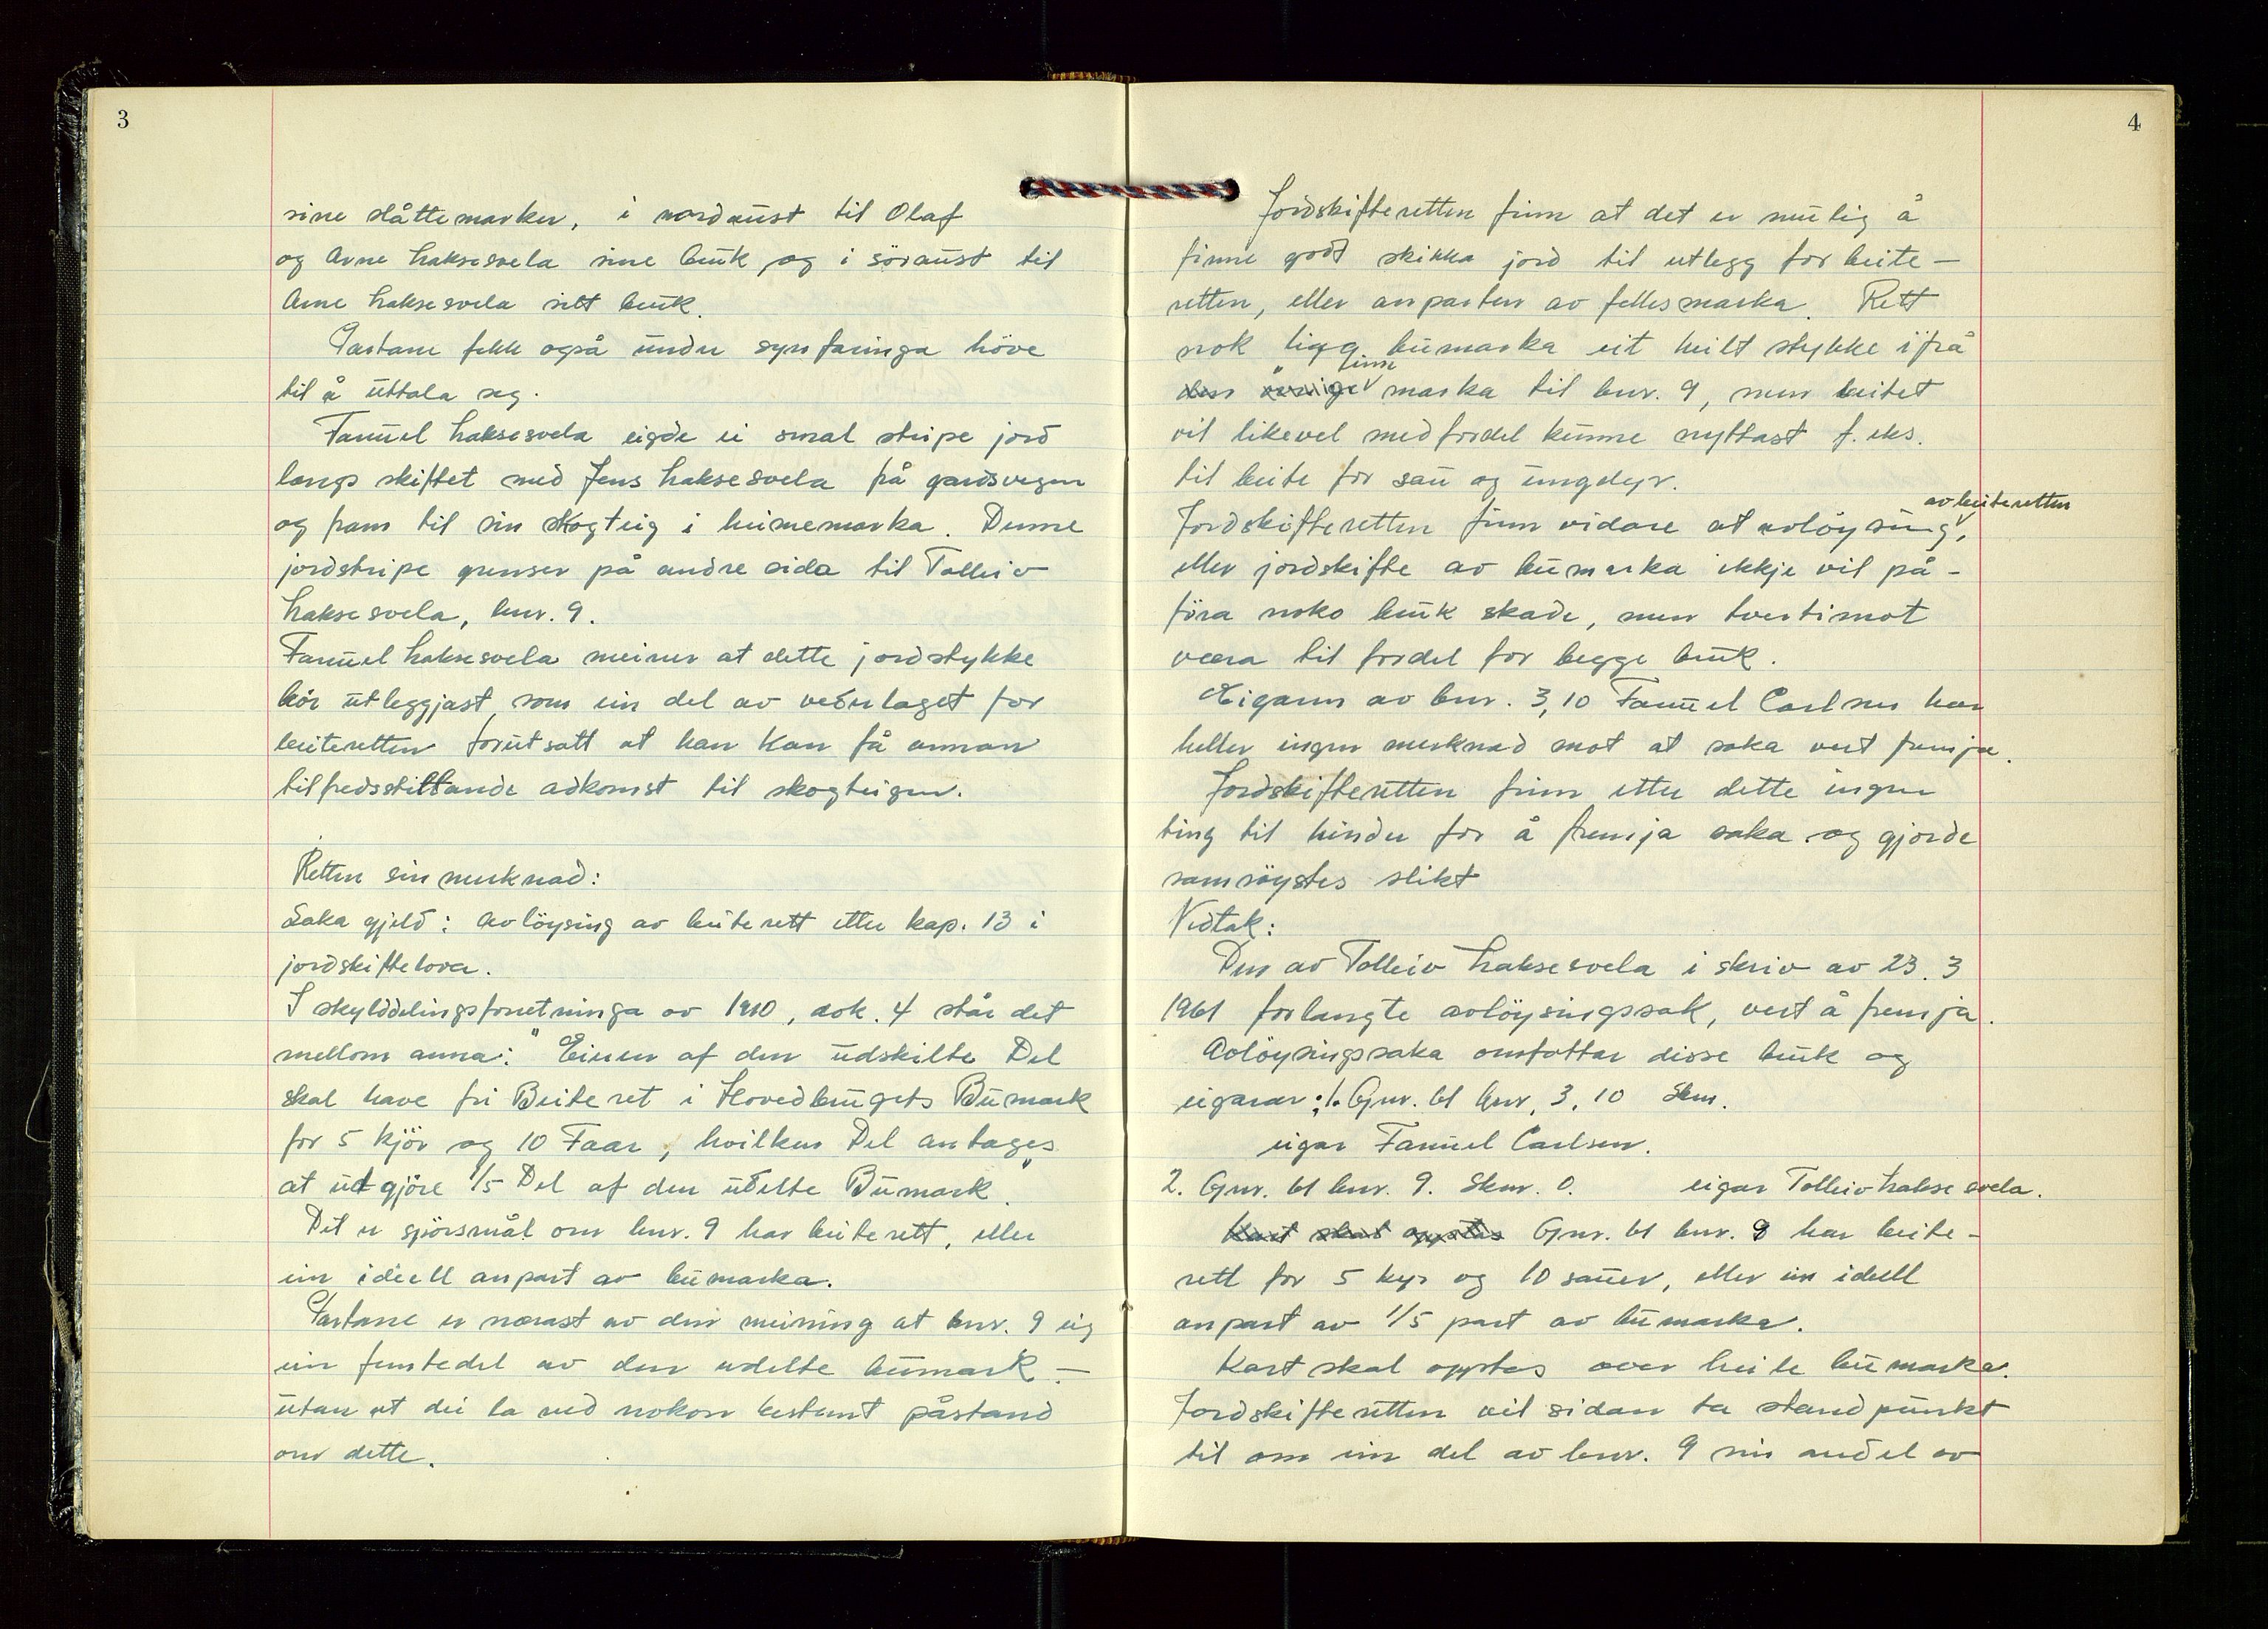 3
sine slåttemarker, i nordaust til Olaf
og Arne Haksesvela sine bruk og i söraust til
Arne Haksesvela sitt bruk.
Partane fekk også under synfaringa höve
til å uttala seg.
Fanuel Haksesvela eigde ei smal stripe jord
langs skiftet med Jens Haksesvela frå gardsvegen
og fram til sin skogteig i heimemarka. Denne
jordstripe grenser på andre sida til Tolleiv
Haksesvela, bnr. 9.
Fanuel Haksesvela meiner at dette jordstykke
bör utleggjast som ein del av vederlaget for
beiteretten forutsatt at han kan få annan
tilfredsstillande adkomst til skogteigen.
Retten sin merknad:
Saka gjeld: Avlöysing av beiterett etter kap. 13 i
jordskiftelova.
I skylddelingsforretninga av 1910, dok. 4 står det
mellom anna: "Eieren af den udskilte Del
skal have fri Beiteret i Hovedbrugets Bumark
for 5 kjör og 10 Faar, hvilken Del antages
at udgjöre 1/5 Del af den udelte Bumark".
Det er spörsmål om bnr. 9 har beiterett, eller
ein ideell anpart av bumarka.
Partane er nærast av den meining at bnr. 9 eig
ein femtedel av den udelte bumark -
utan at dei la ned nokon bestemt påstand
om dette.
4
Jordskifteretten finn at det er mulig å
finne godt skikka jord til utlegg for beite-
retten, eller anparten av fellesmarka. Rett
nok ligg bumarka eit heilt stykke ifrå
den övrige heimemarka til bnr. 9, men beitet
vil likevel med fordel kunne nyttast f. eks.
til beite for sau og ungdyr.
av beiteretten
Jordskifteretten finn vidare at avlöysing,
eller jordskifte av bumarka ikkje vil på-
föra noko bruk skade, men tvertimot
vera til fordel for begge bruk.
Eigaren av bnr. 3,10 Fanuel Carlsen har
heller ingen merknad mot at saka vert fremja.
Jordskifteretten finn etter dette ingen
ting til hinder for å fremja saka og gjorde
samröystes slikt
Vedtak:
Den av Tolleiv Haksesvela i skriv av 23. 3
1961 forlangte avlöysingssak, vert å fremja.
Avlöysingssaka omfattar disse bruk og
eigarar: 1. Gnr. 61 bnr. 3, 10 Skm.
eigar Fanuel Carlsen.
2. Gnr. 61 bnr. 9. Skm. 0. eigar Tolleiv Haksesvela.
Kart skal opptas Gnr. 61 bnr. 9 har beite-
rett for 5 kyr og 10 sauer, eller ein ideell
anpart av 1/5 part av bumarka.
Kart skal opptas over heile bumarka.
Jordskifteretten vil sidan ta standpunkt
til om ein del av bnr. 9 sin andel av